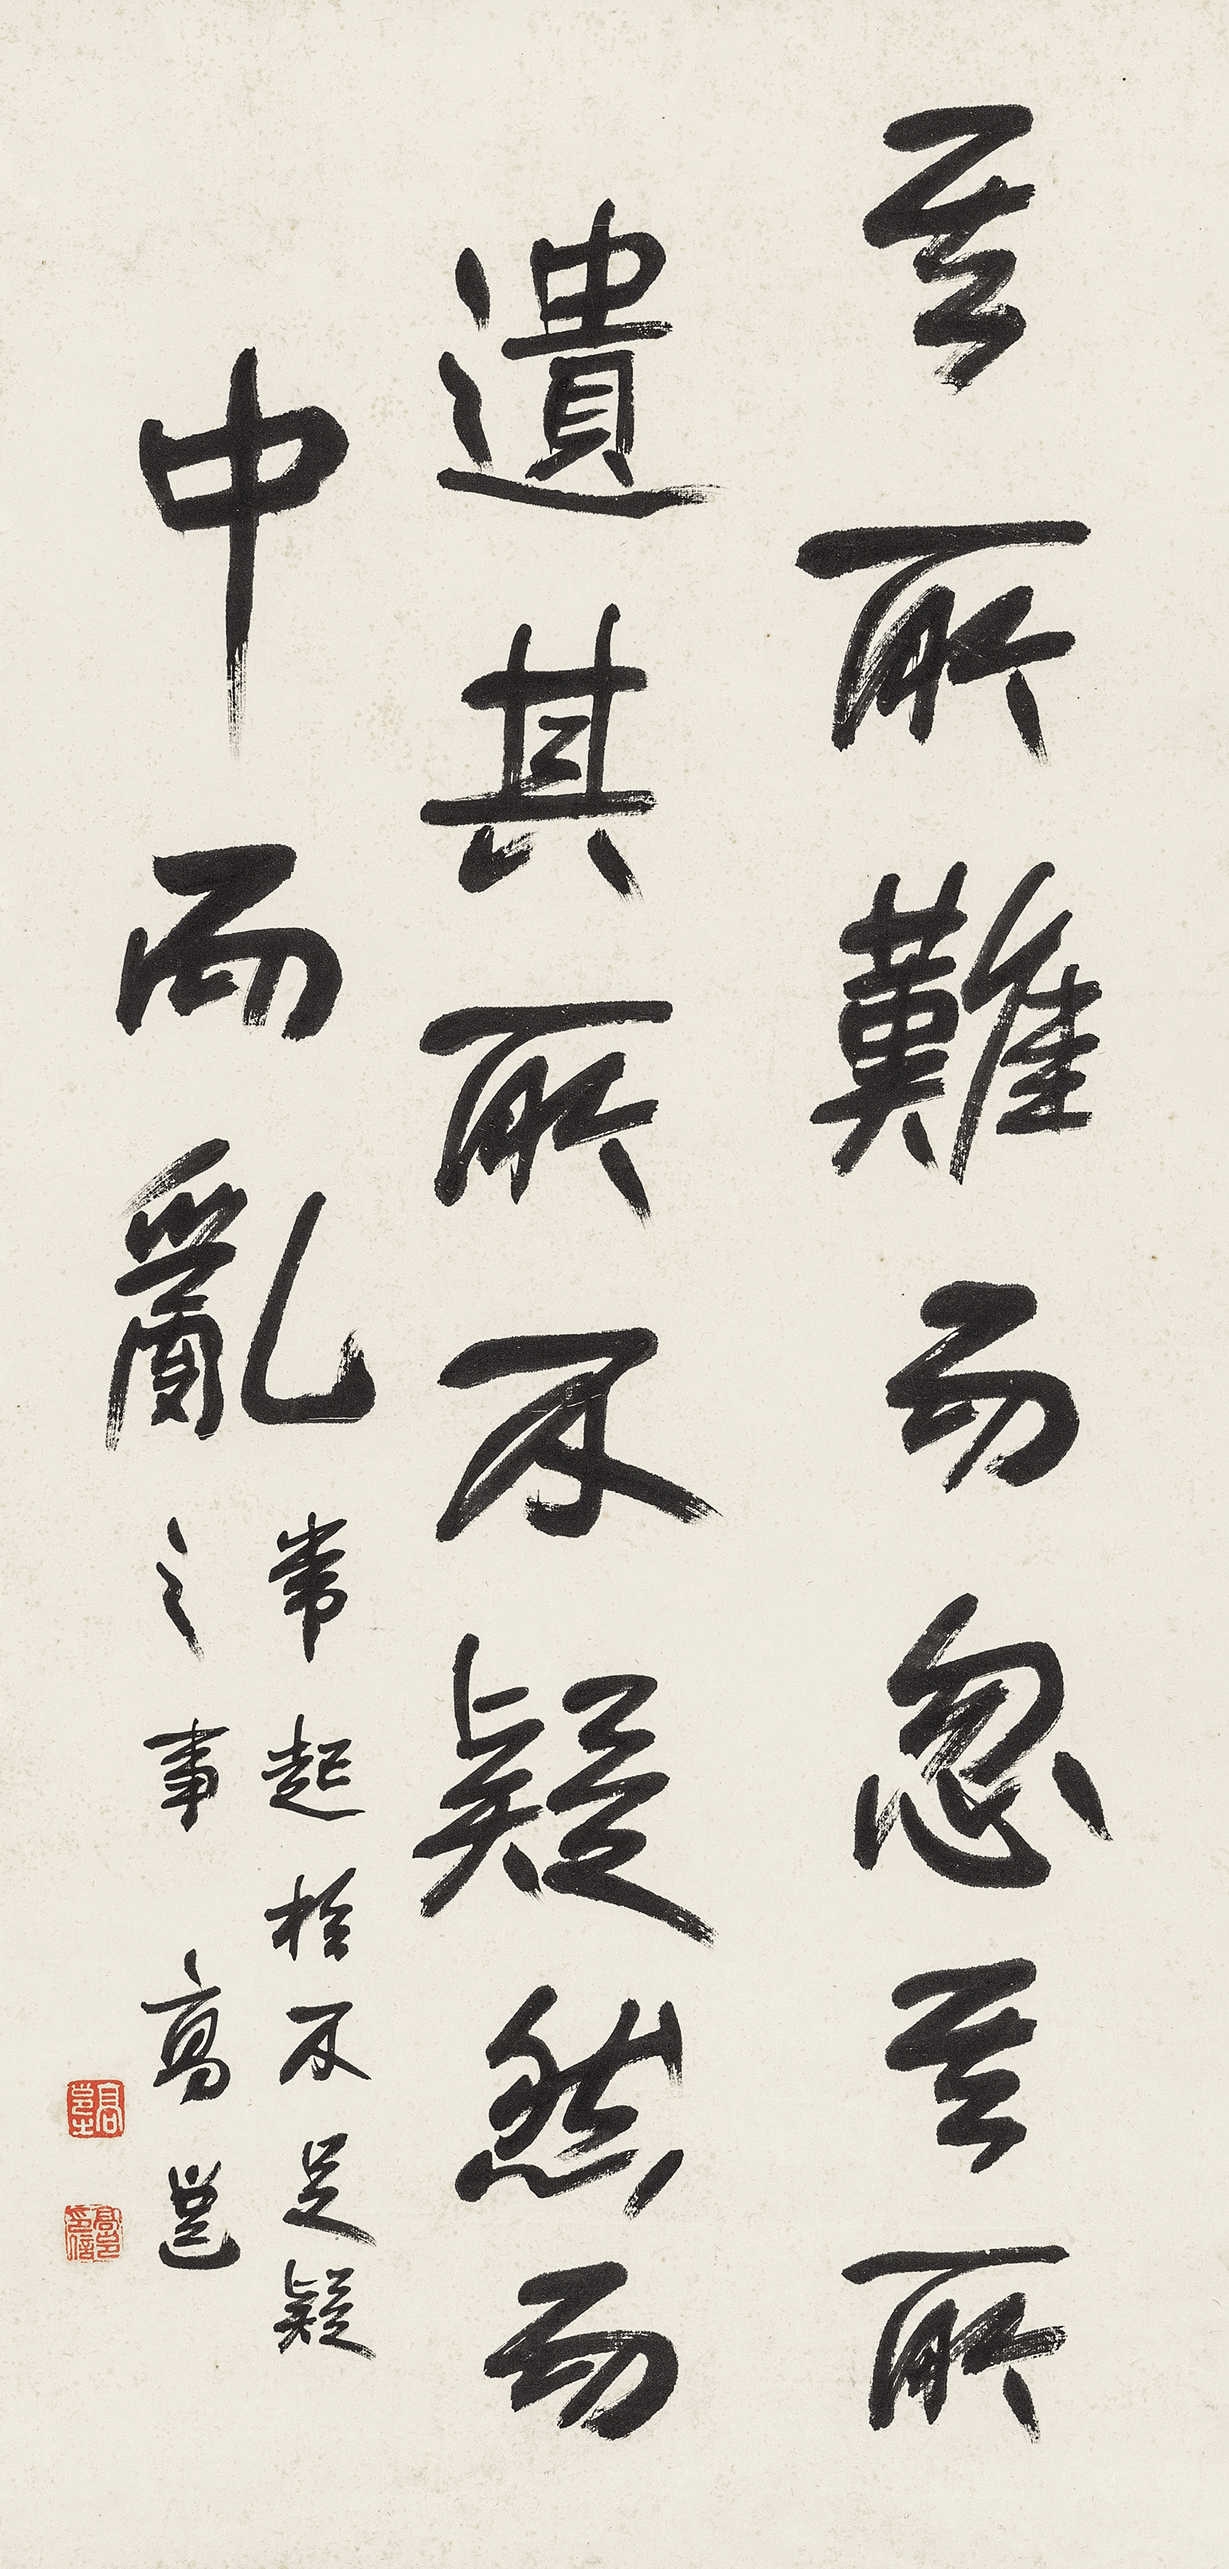 其所難而忽其所
遺其所不疑然而
中而亂
常起於不足疑
之事 高邕